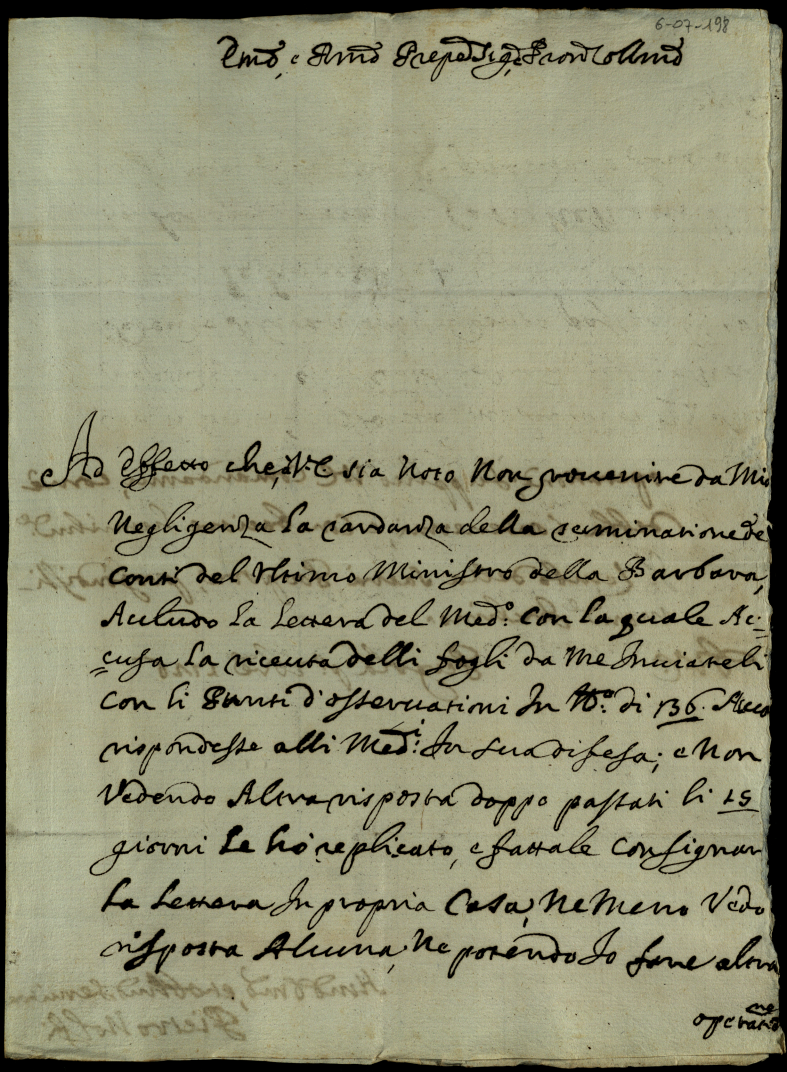 6-07-198
Ad Effetto che, à V: E sia Noto Non provenire da Mia
Negligenza La tardanza della terminatione de
Conti del Vltimo Ministro della Barbara,
Acludo La Lettera del Med:o con La quale Ac:
:cusa La riceuta delli fogli da Me Inuiateli
Con li Punti d'osseruationi In N:o di 136. Acciò
rispondesse alli Med:i In sua difesa; e Non
Vedendo Altra risposta doppo passati li 15
giorni Le hò replicato, e fattale Consignar
La Lettera In propria Casa, Ne Meno Vedo
risposta Alcuna, Ne potendo Io fare altra
operat:ne